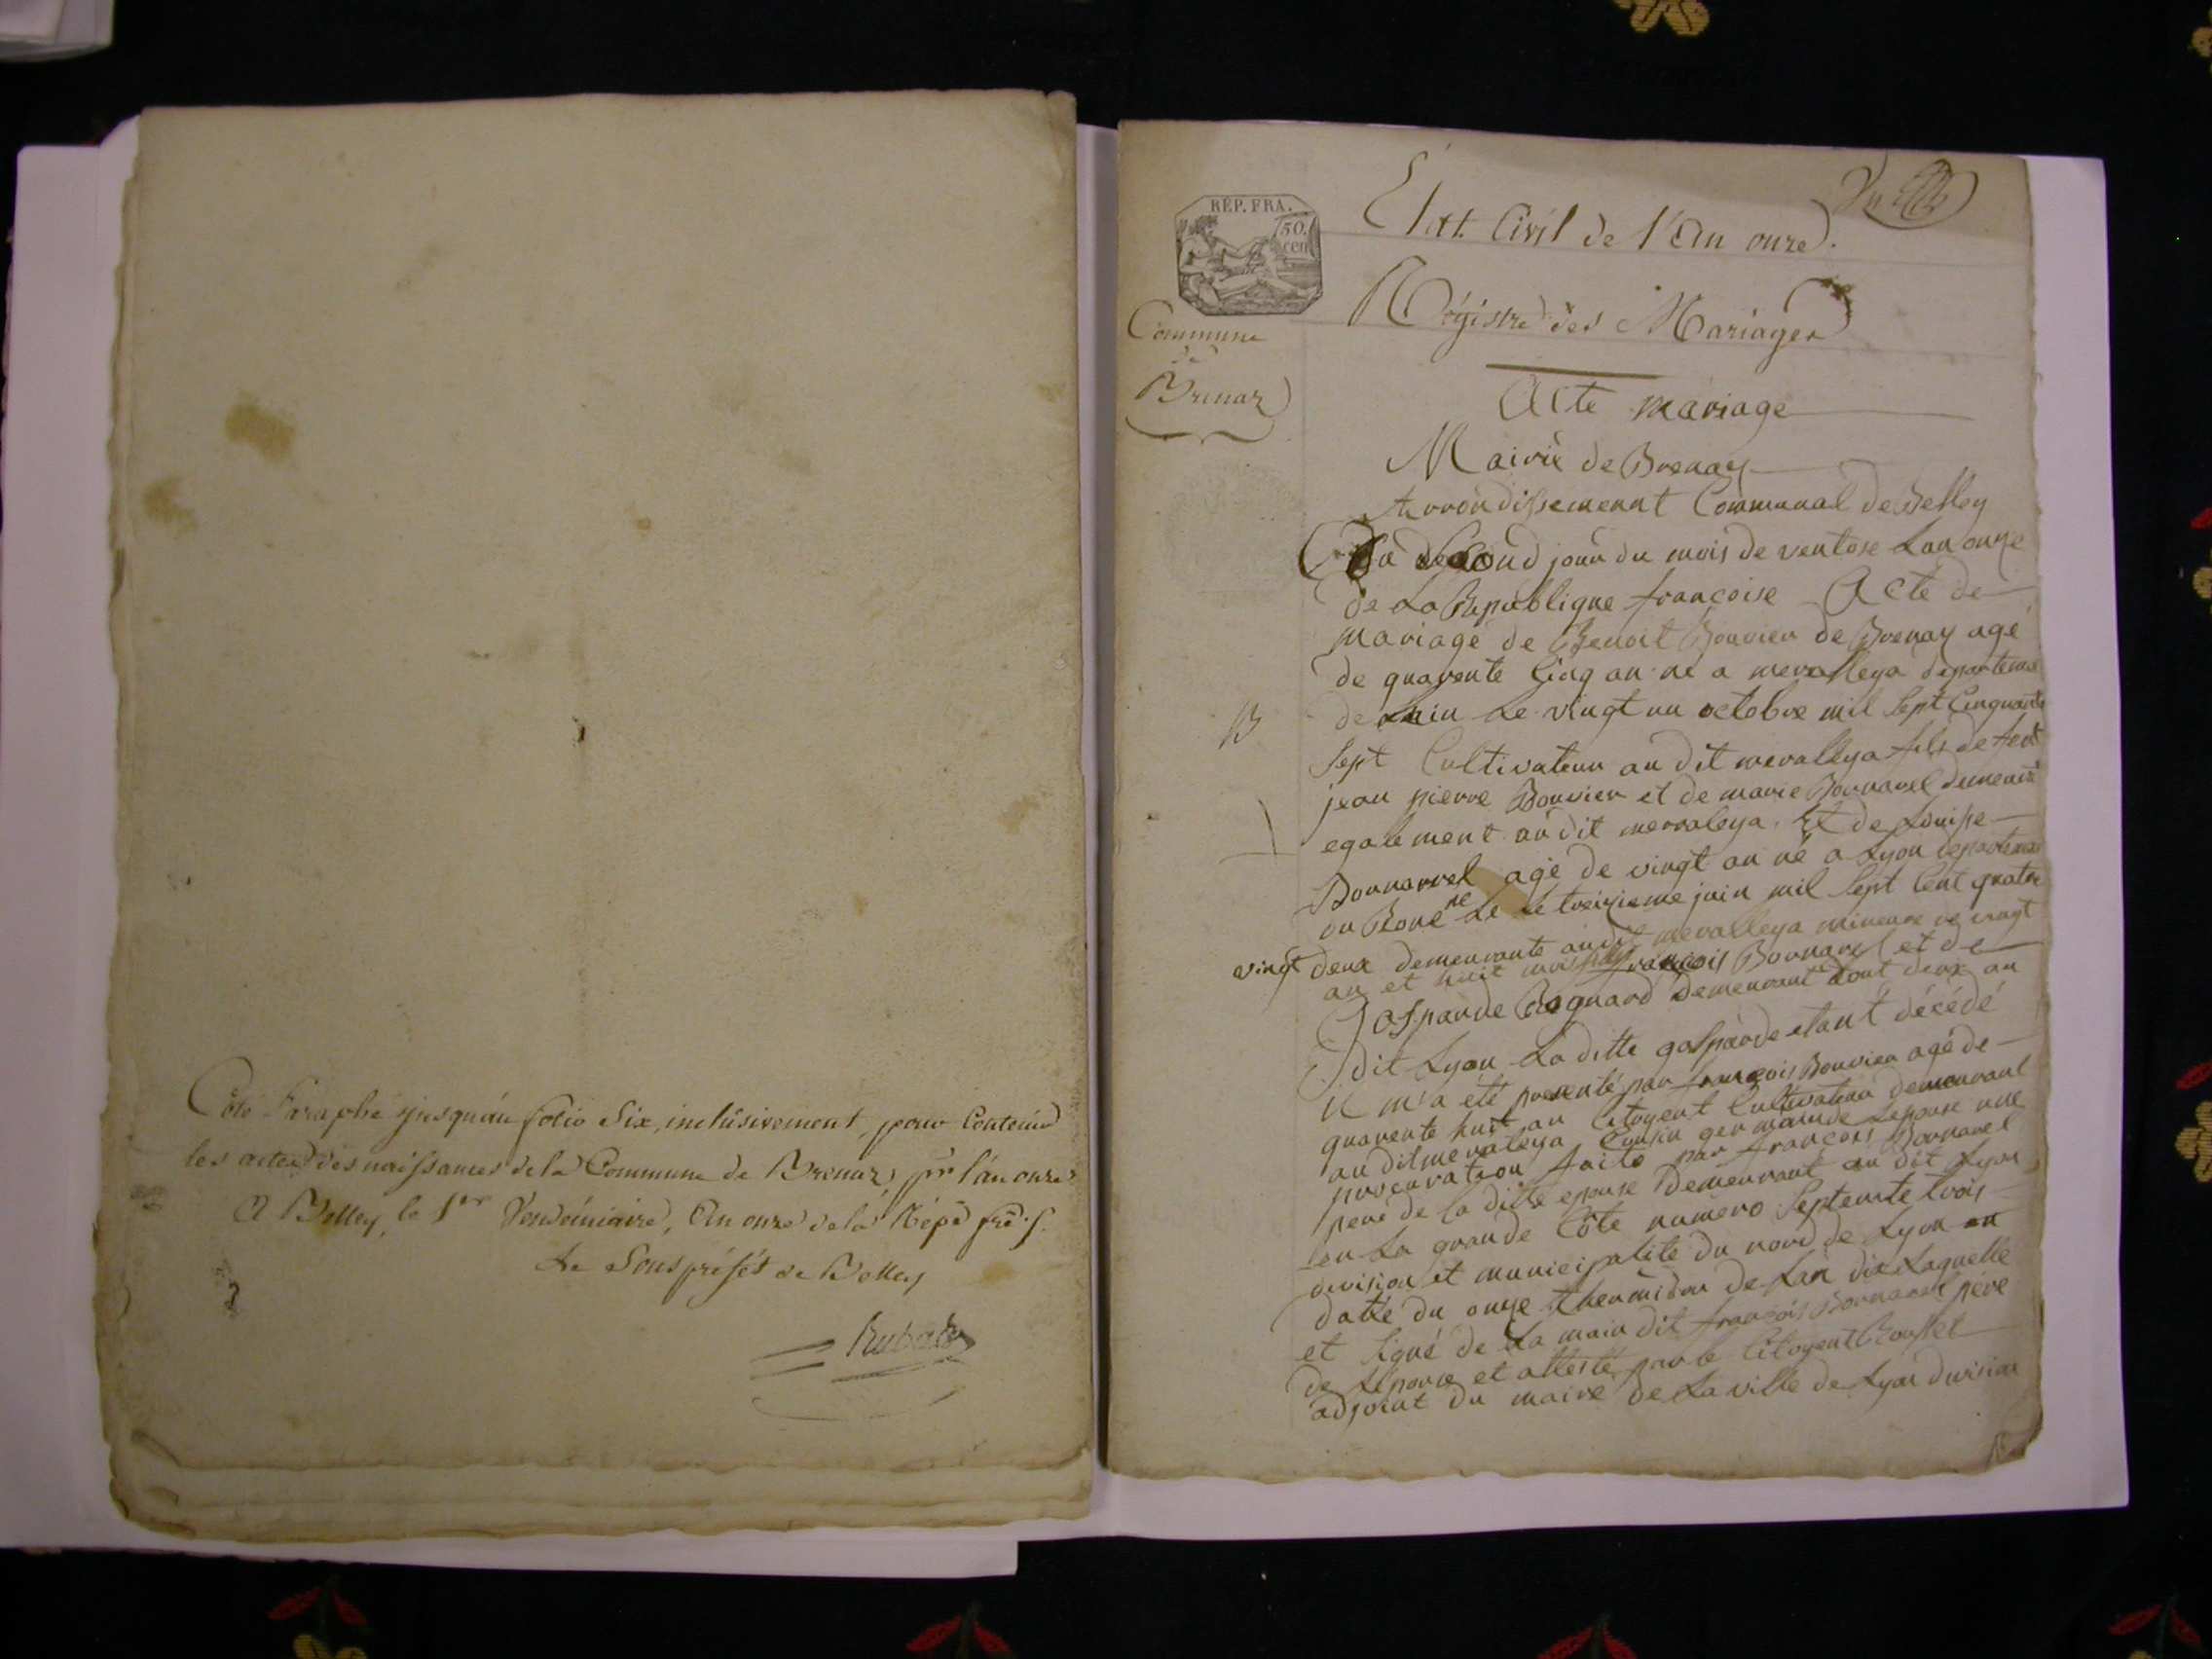 Coté Paraphé jusqu'au folio Six, inclusivement, pour Contenir
les actes des naissances de la Commune de Brenaz, pr l'an onze
A Belley, le 1er Vendémiaire, An onze de la Rép. frse.
Le Sous préfét de Belley
RÉP. FRA.
50.
cen
Etat Civil de l'An onze.
Commune
de
Brenaz
Régistre des Mariages
Acte mariage
Mairie de Brenaz
Arrondissement Communal de Belley
Du Second jour du mois de ventose Lan onze
de La Republique francoise Acte de
mariage de Benoit Bouvier de Brenaz agé
de quarente Cinq an né a mevalleya departeme
de Lain Le vingt un octobre mil Sept Cinquante
B
Sept Cultivateur au dit mevalleya fils de feut
jean pierre Bouvier et de marie Bornarel demeurt
egalement au dit mervaleya. Et de Louise
Bornarrel agé de vingt an né a Lyon departemen
du Rone le treizieme juin mil Sept Cent quatre
vingt deux demeurante au dit mevalleya mineure de vingt
an et huit mois françois Bornarel et de
Gaspande Bagnard demeurant tout deux au
dit Lyon La ditte gaspande etant décédé
il m'a été presenté par françois Bouvier agé de
quarente huit an Citoyent Cultivateur demeurant
au dit mevaleya Cousin germain de Lepouse une
procuration faite par françois Bornarel
peré de la ditte epouse demeurant au dit Lyon
en La grande Cote numero Septente trois
division et municipalite du nord de Lyon en
datte du onze thermidor de Lan dix Laquelle
et Signé de La main dit françois Bornarel pere
de Lepouse et attesté par le Citoyent Rousset
adjoint du maire de La ville de Lyon division